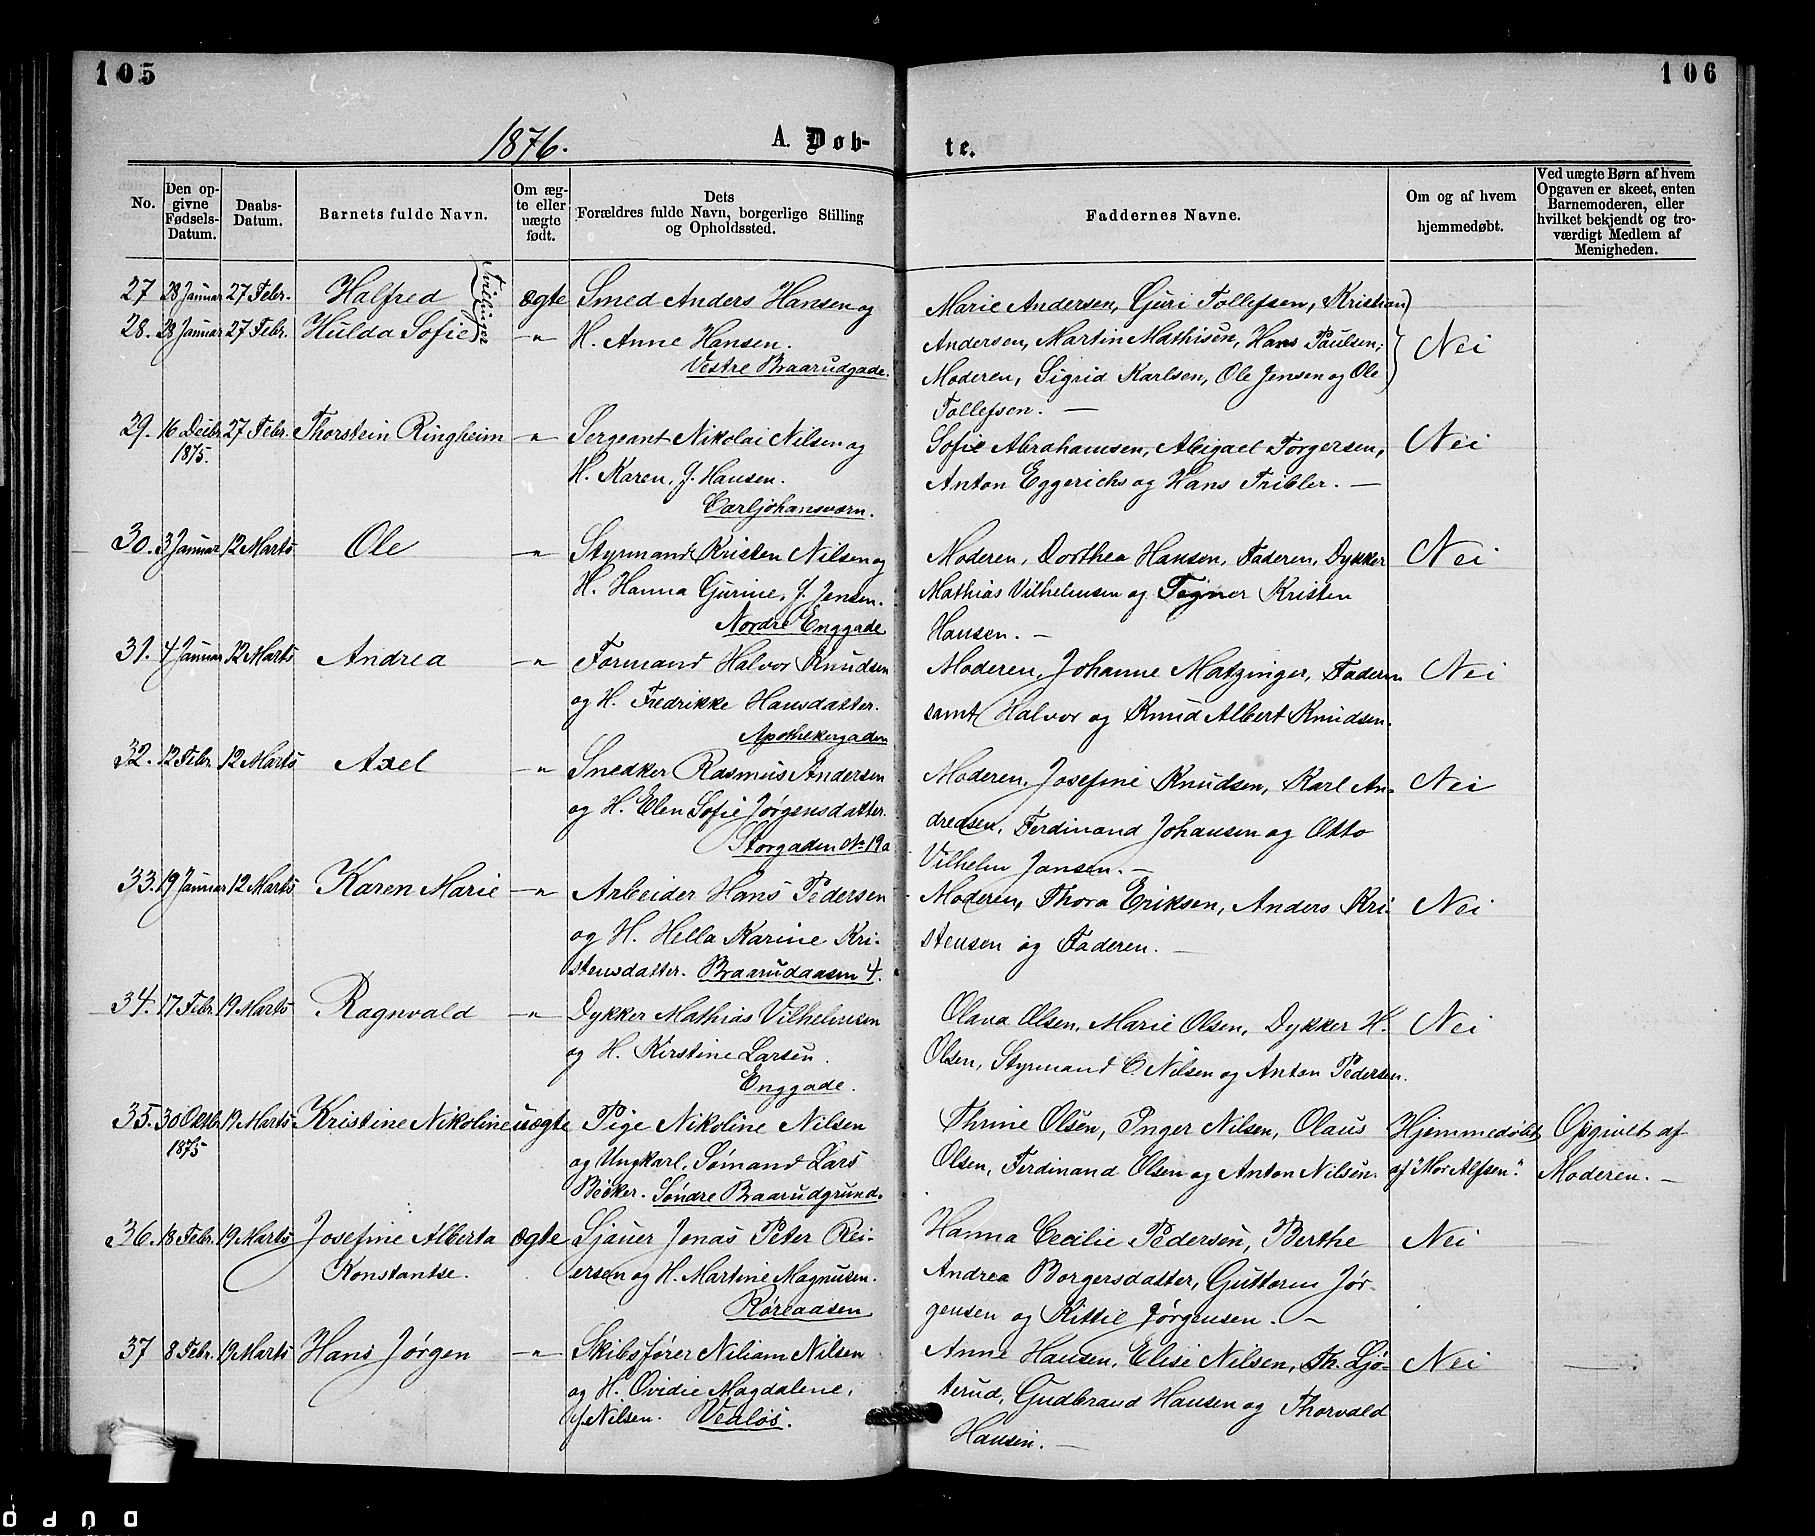 105
106
1876.
A. Døb-
te.
No.
Den op-
givne
Fødsels-
Datum.
Daabs-
Datum.
Barnets fulde Navn.
Om æg-
te eller
uægte
født.
Dets
Forældres fulde Navn, borgerlige Stilling
og Opholdssted.
Faddernes Navne.
Om og af hvem
hjemmedøbt.
Ved uægte Børn af hvem
Opgaven er skeet, enten
Barnemoderen, eller
hvilket bekjendt og tro-
værdigt Medlem af
Menigheden.
27 28 Januar 27 Febr. Halfred ægte Smed Anders Hansen og
28. 28 Januar 27 Febr. Hulda Sofie Tvillinger -"- H. Anne Hansen.
Vestre Baarudgade.
Marie Andersen, Guri Tollefsen, Kristian
Andersen, Martin Mathisen, Hans Paulsen,
Moderen, Sigrid Karlsen, Ole Jensen og Ole
Tollefsen. —
Nei
29. 16 Decbr 27 Febr. Thorstein Ringheim -"- Sergeant Nikolai Nilsen og
1875. H. Karen, f. Hansen.
Carljohansværn.
Sofie Abrahamsen, Abigael Torgersen,
Anton Eggerichs og Hans Fribler. —
Nei
30. 3 Januar 12 Marts Ole -"- Styrmand Kristen Nilsen og
H. Hanna Gurine, f. Jensen.
Nordre Enggade
Moderen, Dorthea Hansen, Faderen, Dykker
Mathias Vilhelmsen og Tegner Kristen
Hansen. —
Nei
31. 4 Januar 12 Marts Andrea -"- Formand Halvor Knudsen
og H. Fredrikke Hansdatter.
Apothekergaden
Moderen, Johanne Matzinger, Faderen
samt Halvor og Knud Albert Knudsen.
Nei
32. 12 Febr. 12 Marts Axel -"- Snedker Rasmus Andersen
og H. Elen Sofie Jørgensdatter.
Storgaden No 19a
Moderen, Josefine Knudsen, Karl An-
dreasen, Ferdinand Johansen og Otto
Vilhelm Jansen. —
Nei
33. 19 Januar 12 Marts Karen Marie -"- Arbeider Hans Pedersen
og H. Hella Karine Kri-
stensdatter. Baarudaasen 4.
Moderen, Thora Eriksen, Anders Kri-
stensen og Faderen. —
Nei
34. 17 Febr. 19 Marts Ragnvald -"- Dykker Mathias Vilhelmsen
og H. Kirstine Larsen.
Enggade.
Olava Olsen, Marie Olsen, Dykker H.
Olsen, Styrmand C. Nilsen og Anton Pedersen.
Nei
35. 30 Oktb. 19 Marts Kristine Nikoline uægte Pige Nikoline Nilsen
1875 og Ungkarl, Sømand Lars
Becker. Søndre Baarudgrund.
Thrine Olsen, Inger Nilsen, Olaus
Olsen, Ferdinand Olsen og Anton Nilsen.
Hjemmedøbt
af "Mor Alfsen".
Opgivet af
Moderen. —
36. 18 Febr. 19 Marts Josefine Alberta ægte Ljauer Jonas Peter Rei-
Konstantse. ersen og H. Martine Magnusen.
Røreaasen
Hanna Cecilie Pedersen, Berthe
Andrea Borgersdatter, Guttorm Jør-
gensen og Kittil Jørgensen. —
Nei —
37 8 Febr. 19 Marts Hans Jørgen -"- Skibsfører Niliam Nilsen
og H. Ovidie Magdalene,
f. Nilsen. Vealøs.
Anne Hansen, Elise Nilsen, Th. Ljø-
terud, Gudbrand Hansen og Thorvald
Hansen. —
Nei —